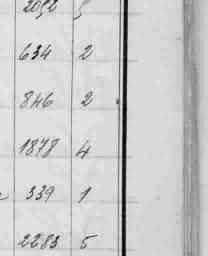 2052 5
634 2
846 2
1878 4
339 1
2283 5